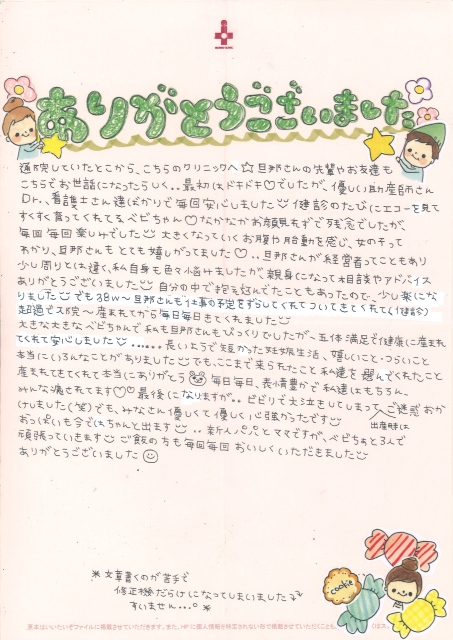 ありがとうございました
通院していたとこから、こちらのクリニックへ☆旦那さんの先輩やお友達も
こちらでお世話になったらしく..最初はドキドキ♡でしたが、優しい助産師さん
Dr.、看護士さん達ばかりで毎回安心しました 健診のたびにエコーを見て
すくすく育ってくれてる、ベビちゃん♡なかなかお顔見れずで残念でしたが、
毎回毎回楽しみでした 大きくなっていくお腹や胎動を感じ、女の子って
わかり、旦那さんもとても嬉しがってました♡..旦那さんが経営者ってこともあり
少し周りとは違く、私自身も色々悩みましたが、親身になって相談やアドバイス
ありがとうございました 自分の中で抱え込んでたこともあったので、少し楽にな
りました でも38w〜旦那さんも仕事の予定をずらしてくれてついてきてくれて(健診)
超過で入院〜産まれてから毎日毎日きてくれました
大きな大きなベビちゃんで私も旦那さんもびっくりでしたが、五体満足で健康に産まれ
てくれて安心しました......長いようで短かった妊娠生活、嬉しいこと・つらいこと
本当にいろんなことがありました でも、ここまで来られたこと私達を選んでくれたこと
産まれてきてくれて本当にありがとう 毎日毎日、表情豊かで私達はもちろん、
みんな癒されてます♡♡最後になりますが..ビビリで大泣きしてしまって、ご迷惑おか
出産時は
けしました(笑)でも、みなさん優しくて優しく心強かったです
おっぱいも今ではちゃんと出ます..新人パパとママですが、ベビちゃんと3人で
頑張っていきます ご飯の方も毎回毎回おいしくいただきました
ありがとうございました
*文章書くのが苦手で
修正機だらけになってしまいました
すいません...。*
cookie
原本はいいたいぞファイルに掲載させていただきます。また、HPに個人情報が特定されない形で掲載させていただくことも、